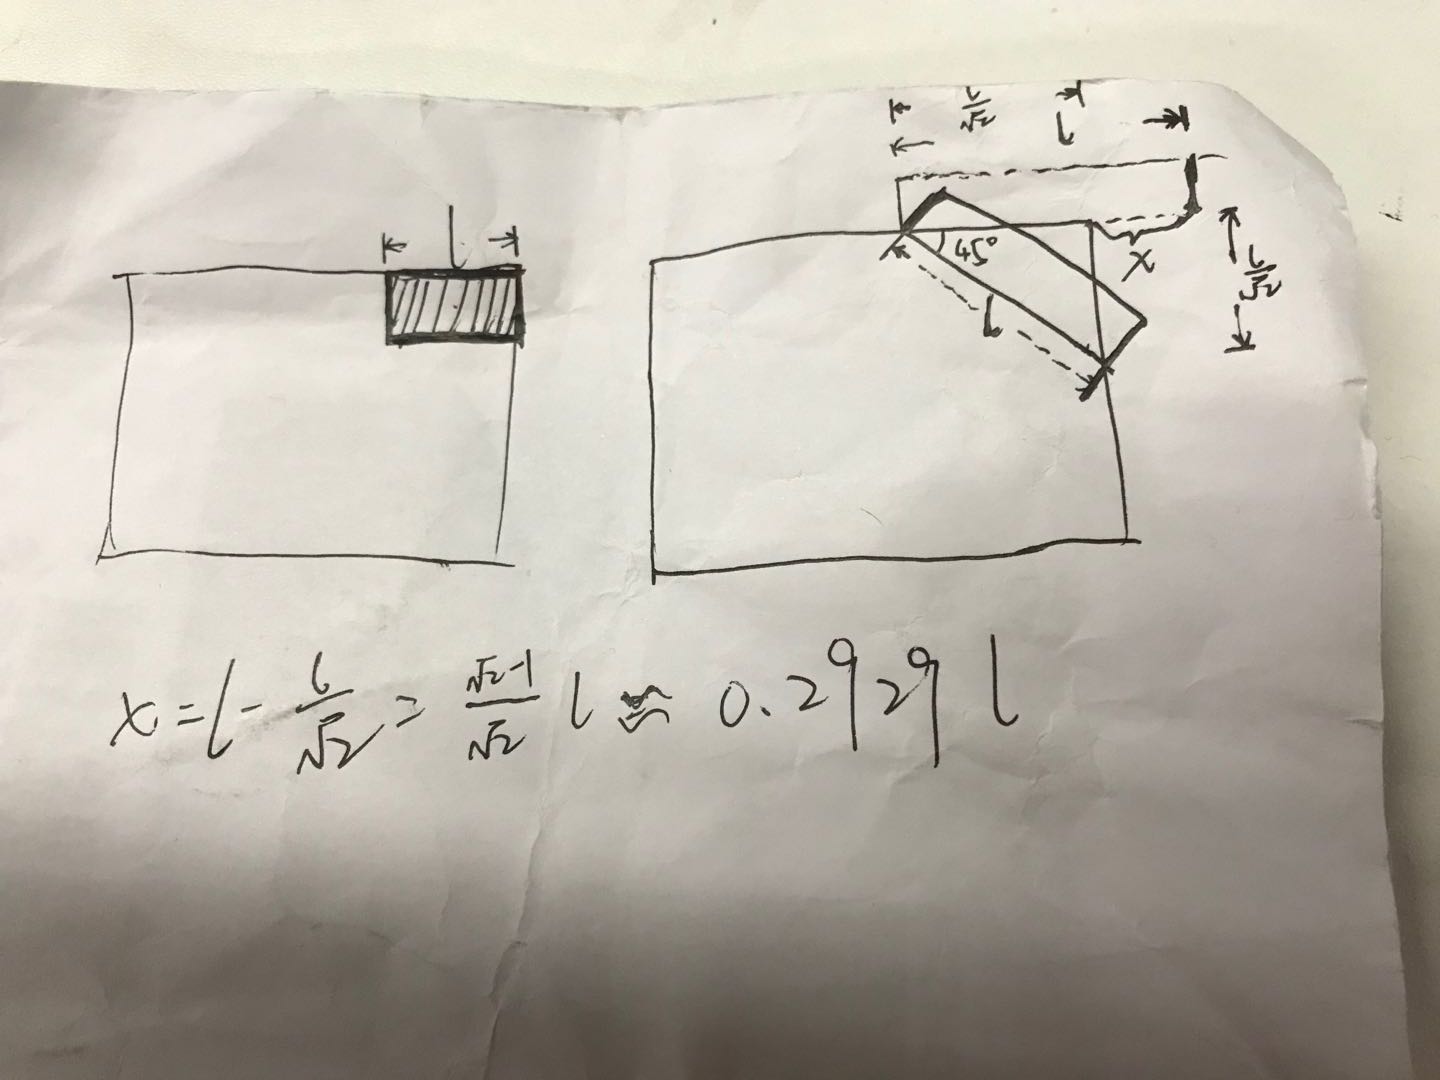 l
l/√2
l
45°
x
l/√2
l
x = l - l/√2 = (√2-1)/√2 l ≈ 0.2929 l